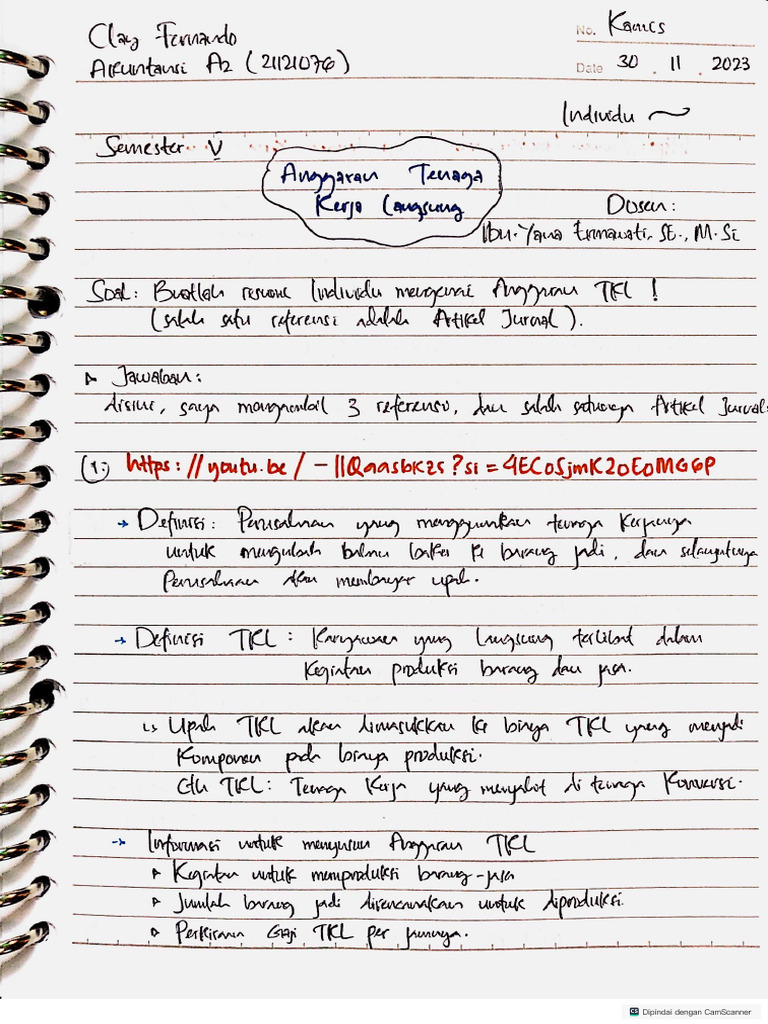 Clay Fernando
Akuntansi A2 (21121076)
No. Kamis
Date 30 . 11 . 2023
Individu
Semester V
Anggaran Tenaga
Kerja Langsung
Dosen:
Ibu. Yana Ermawati, SE., M.Si
Soal: Buatlah resume Individu mengenai Anggaran TKL !
(salah satu referensi adalah Artikel Jurnal).
Jawaban:
disini, saya mengambil 3 referensi, dan salah satunya Artikel Jurnal.
(1.) https://youtu.be/-llQaasbKzs?si=4ECoSjmK2oEoMGGP
→ Definisi: Perusahaan yang menggunakan tenaga kerjanya
untuk mengubah bahan baku ke barang jadi, dan selanjutnya
Perusahaan akan membayar upah.
→ Definisi TKL : Karyawan yang langsung terlibat dalam
kegiatan produksi barang dan jasa.
↳ Upah TKL akan dimasukkan ke biaya TKL yang menjadi
komponen pada biaya produksi.
Cth TKL: Tenaga Kerja yang menjahit di tenaga konveksi.
→ Informasi untuk menyusun Anggaran TKL
▹ Kegiatan untuk memproduksi barang-jasa
▹ Jumlah barang jadi direncanakan untuk diproduksi.
▹ Perkiraan Gaji TKL per jamnya.
CS Dipindai dengan CamScanner